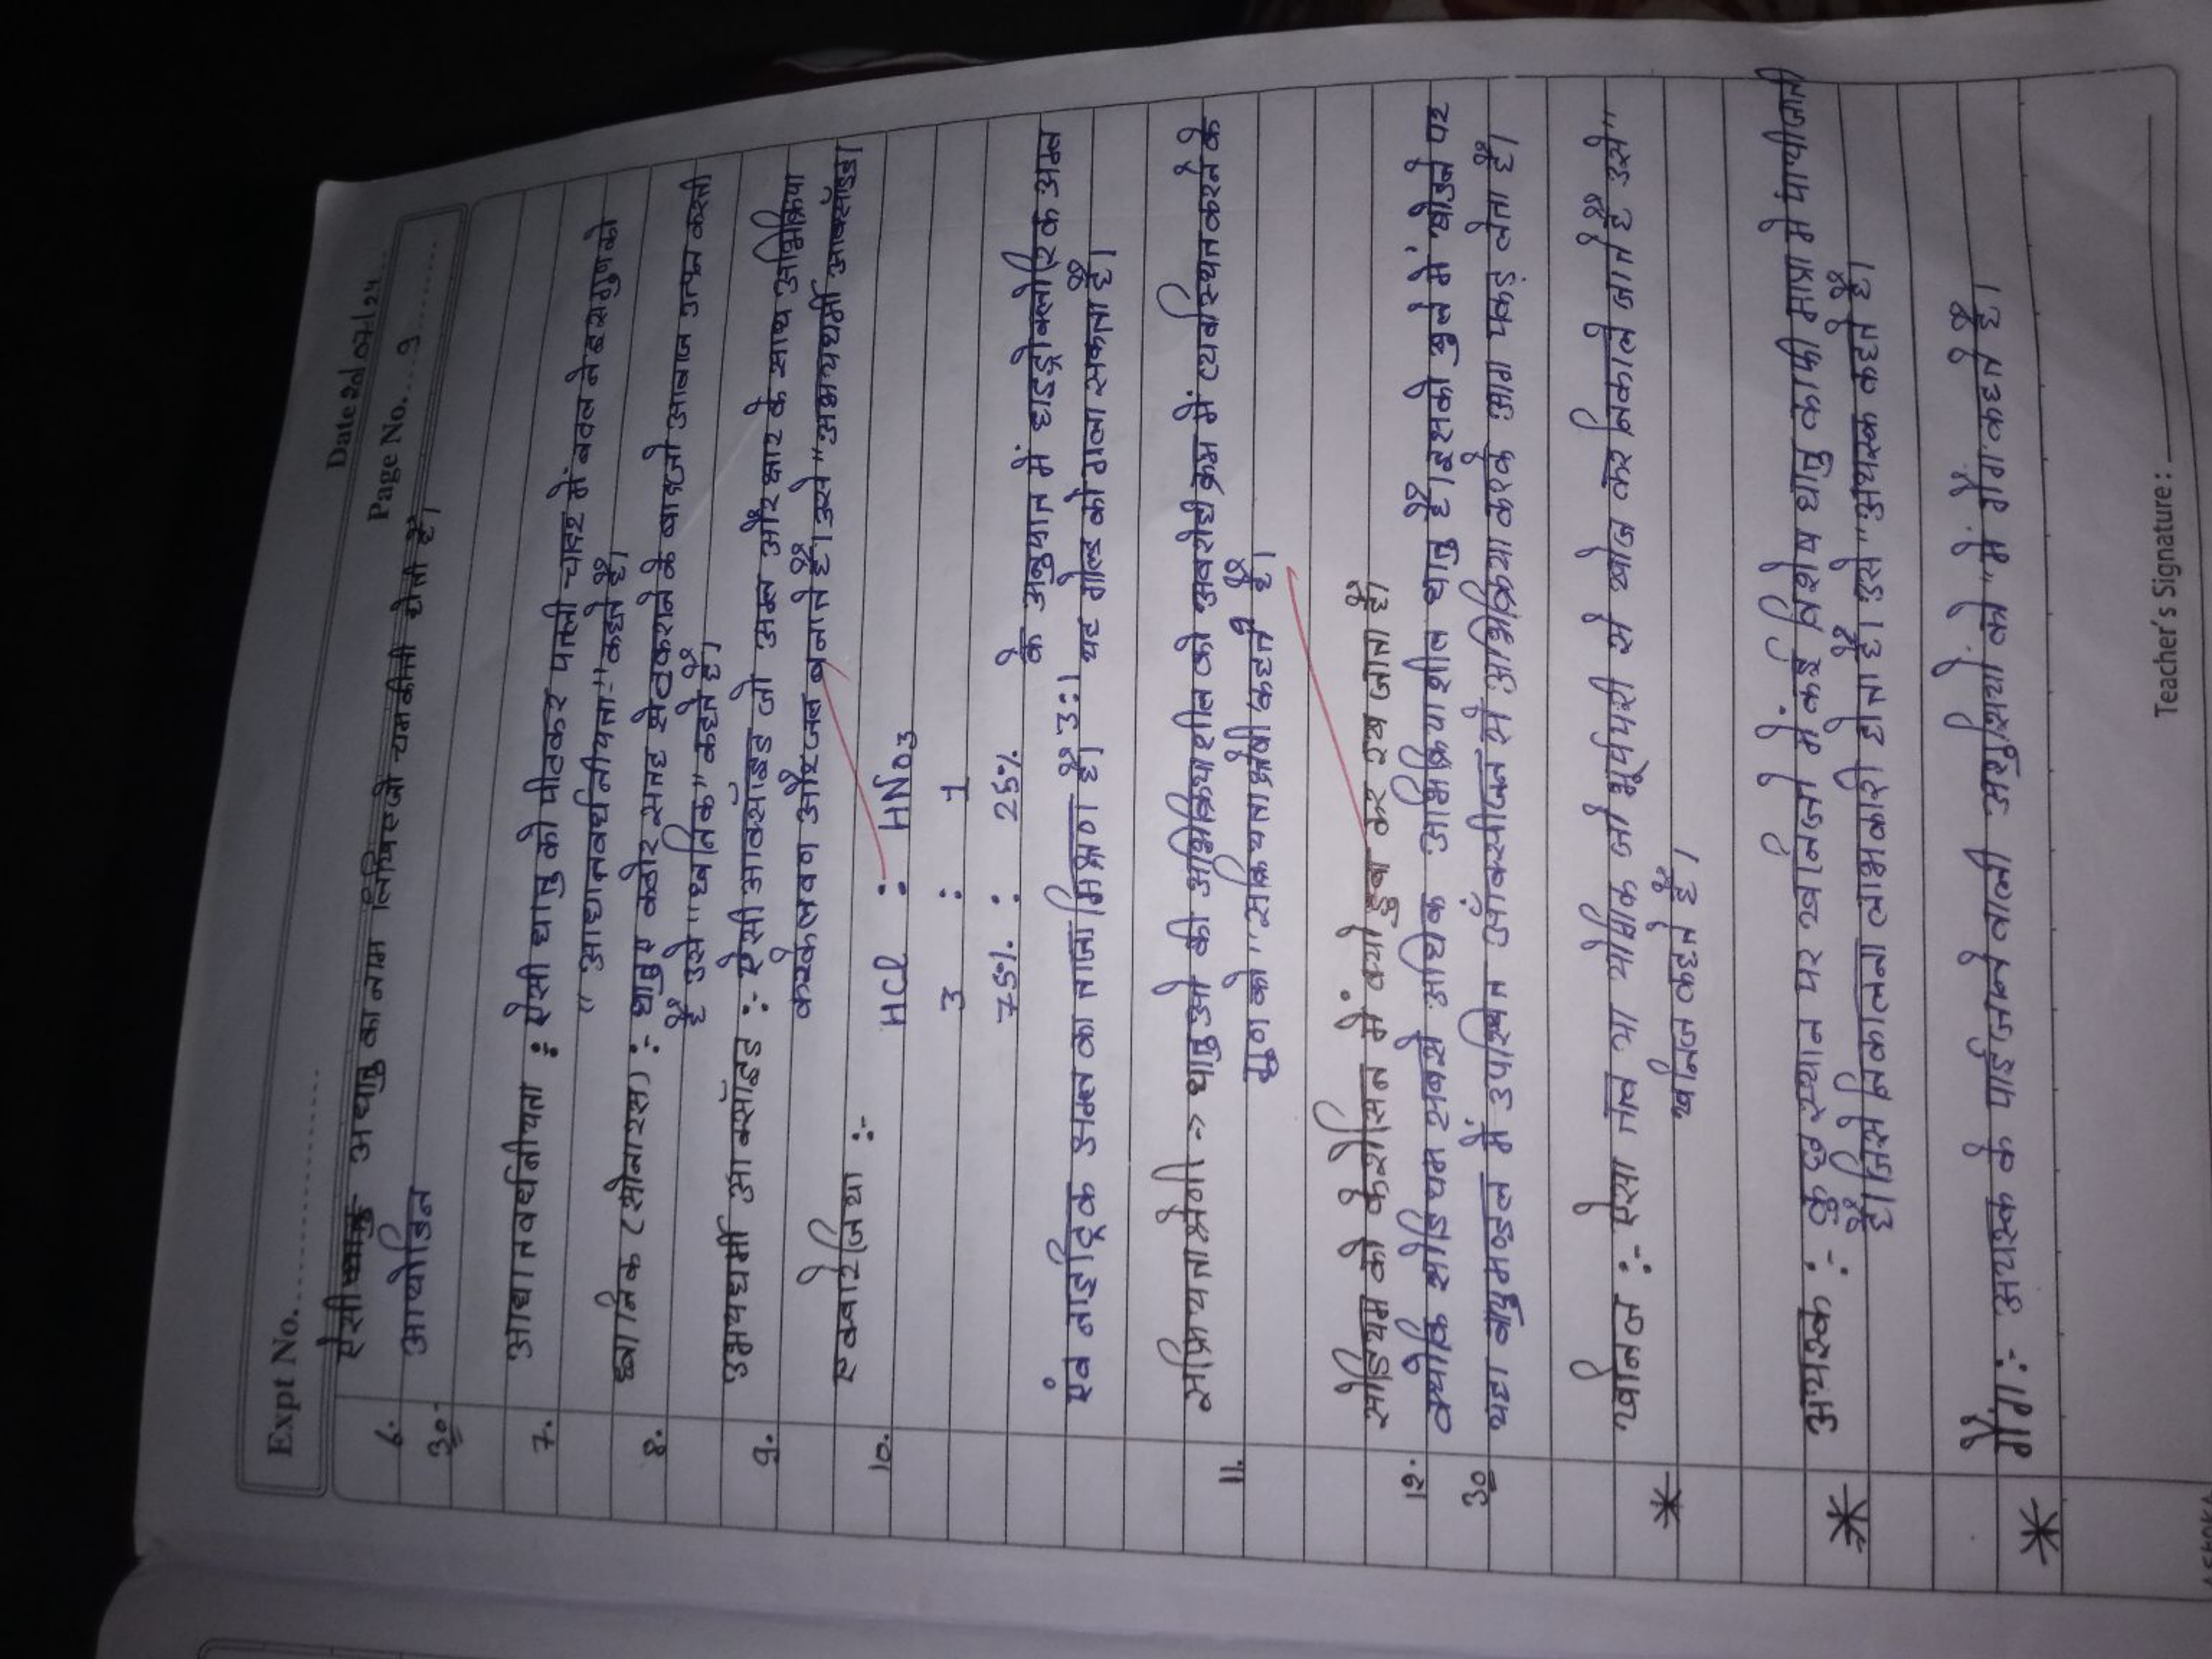 Expt No.
Date 20/07/24
Page No. 9
6. ऐसी अधातु का नाम लिखिए जो चमकीली होती है।
उ०- आयोडिन
7. आघातवर्धनीयता :- ऐसी धातु को पीटकर पतली चादर में बदल ने इस गुण को
" आघातवर्धनीयता-" कहते हैं।
8. ध्वानिक (सोनारस) :- धातुए कठोर सतह से टकराने के बाद जो आवाज उत्पन्न करती
है उसे "ध्वनिक" कहते है।
9. उभयधर्मी आक्सॉइड :- ऐसी आक्सॉइड जो अम्ल और क्षार के साथ अभिक्रिया
करके लवण और जल बनाते है। उसे "उभयधर्मी आक्सॉइड।
10. एक्वारेजिया :-
HCl : HNO3
3 : 1
75% : 25%
के अनुपात में हाइड्रोक्लोरिक अम्ल
एंव नाइट्रिक अम्ल का ताजा मिश्रण है। 3:1 यह गोल्ड को गला सकता है।
11. सक्रियता श्रेणी -> धातुओ की अभिक्रियाशील को अवरोही क्रम में व्यवस्थित करने के
गुण को "सक्रियता श्रेणी कहते है।
12. सोडियम को केरोसिन में क्यो डुबा कर रखा जाता है।
उ० क्योकि सोडियम सबसे अधिक अभिक्रियाशील धातु है। इसको खुले में छोडने पर
यहा वायुमण्डल में उपस्थित ऑक्सीजन से अभिक्रिया करके आग पकड़ लेता है।
* खनिज :- ऐसा तत्व या योगिक जो भूपर्पटी से खोज कर निकाले जाते है उसे"
खनिज कहते है।
* अयस्क :- कुछ स्थान पर खनिजो में कई विशेष धातु काफी मात्रा मे पायी जाती
है। जिसे निकालना लाभकारी होता है। उसे "अयस्क कहते है।
* गैंग :- अयस्क के पाई जाने वाली अशुद्धियो को "मे गैंग कहते है।
Teacher's Signature :